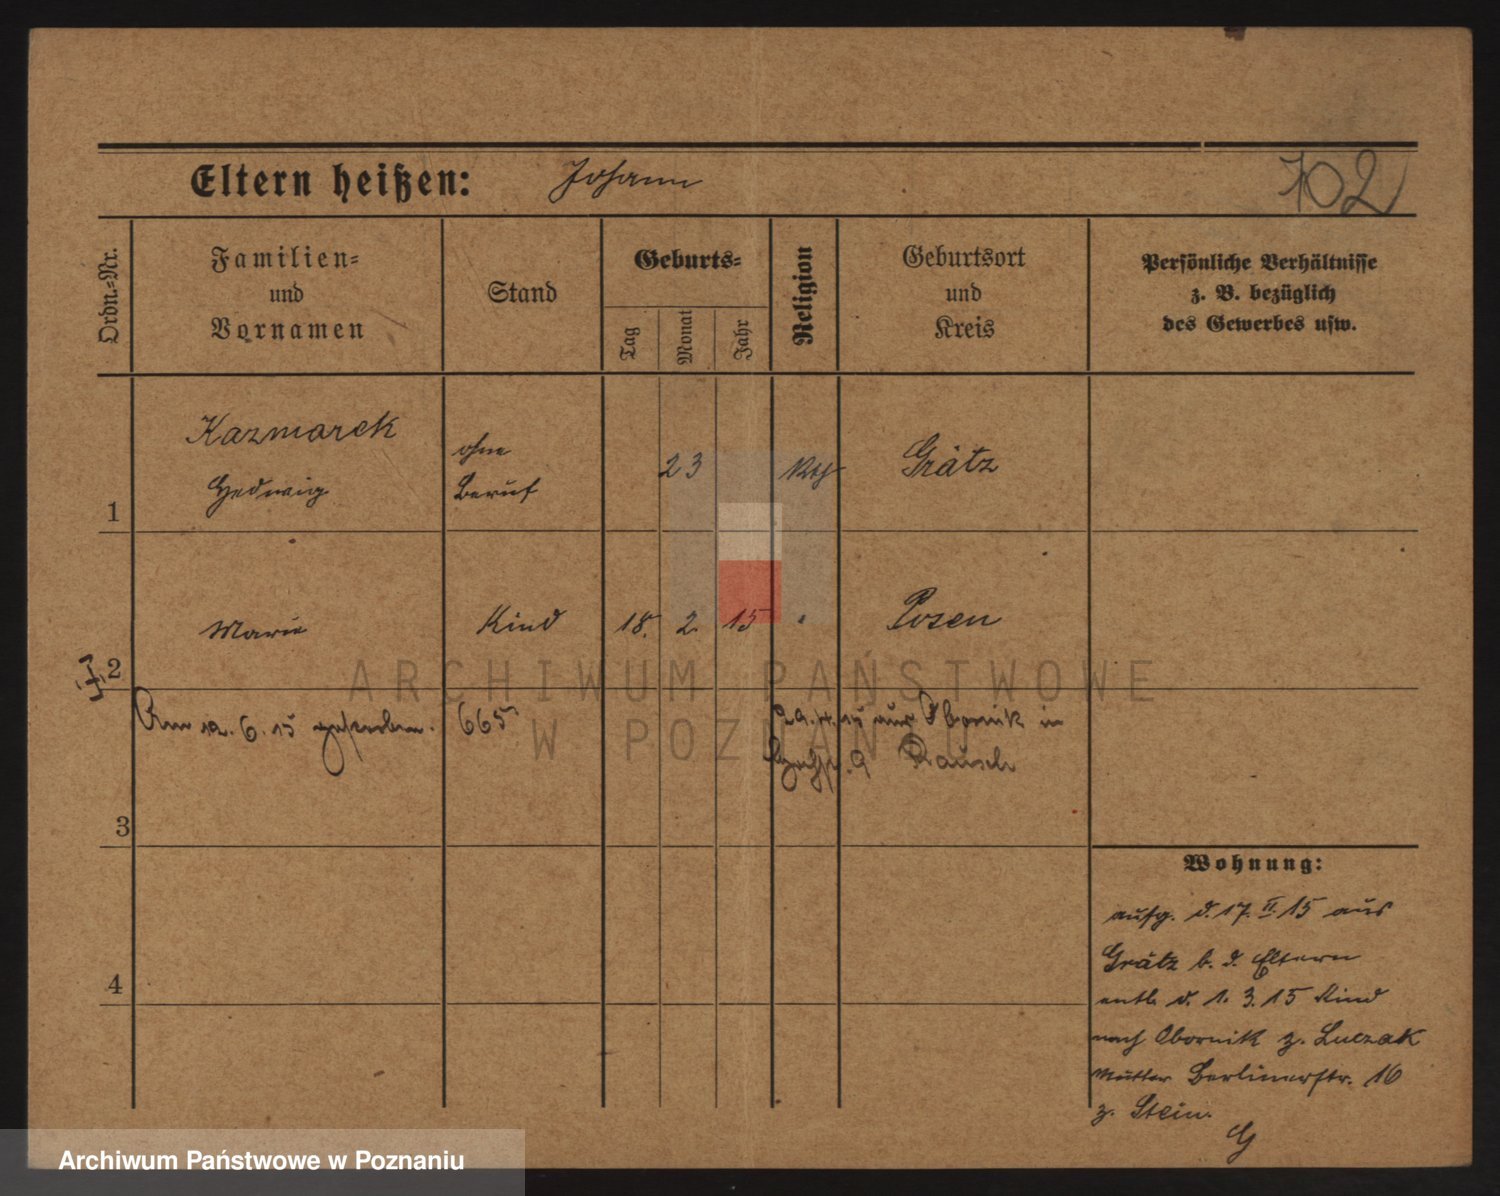 Eltern heißen: Johann
702
Ordn.-Nr.
Familien-
und
Vornamen
Stand
Geburts-
Tag
Monat
Jahr
Religion
Geburtsort
und
Kreis
Persönliche Verhältnisse
z. B. bezüglich
des Gewerbes usw.
1
Kazmarek
Hedwig
ohne
Beruf
23
Kth
Grätz
2
Marie
Kind
18. 2. 15
Posen
Am 12. 6. 15 gestorben. 665
29. 4. 15 aus Obornik in
9 Rausch
3
4
Wohnung:
aufg. d. 17. II. 15 aus
Grätz b. d. Eltern
entl. d. 1. 3. 15 Kind
nach Obornik z. Luczak
Mutter Berlinerstr. 16
z. Stein.
ARCHIWUM PAŃSTWOWE
W POZNANIU
Archiwum Państwowe w Poznaniu